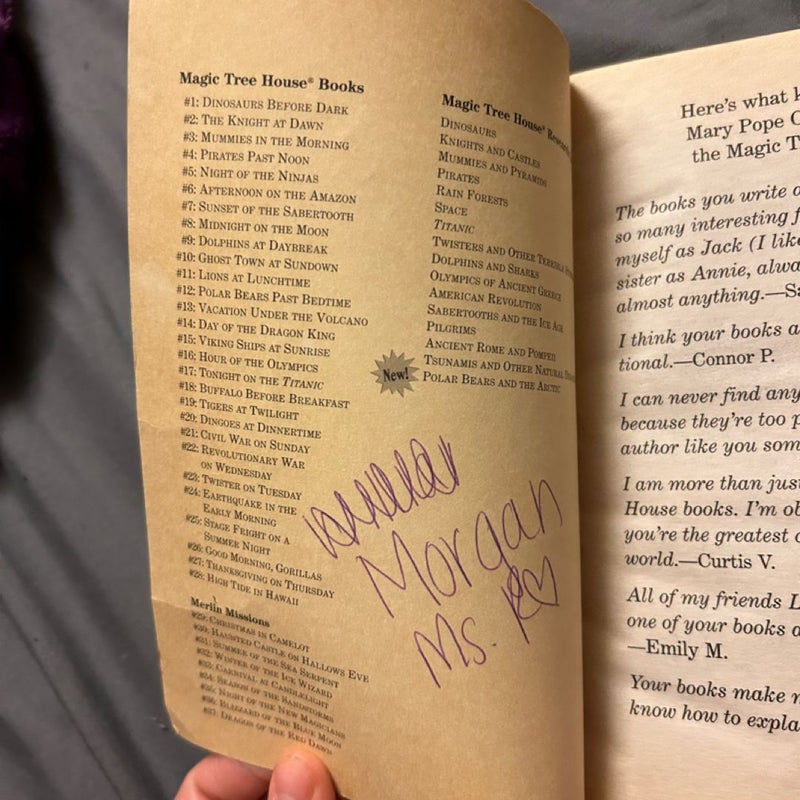 Magic Tree House® Books
#1: DINOSAURS BEFORE DARK
#2: THE KNIGHT AT DAWN
#3: MUMMIES IN THE MORNING
#4: PIRATES PAST NOON
#5: NIGHT OF THE NINJAS
#6: AFTERNOON ON THE AMAZON
#7: SUNSET OF THE SABERTOOTH
#8: MIDNIGHT ON THE MOON
#9: DOLPHINS AT DAYBREAK
#10: GHOST TOWN AT SUNDOWN
#11: LIONS AT LUNCHTIME
#12: POLAR BEARS PAST BEDTIME
#13: VACATION UNDER THE VOLCANO
#14: DAY OF THE DRAGON KING
#15: VIKING SHIPS AT SUNRISE
#16: HOUR OF THE OLYMPICS
#17: TONIGHT ON THE TITANIC
#18: BUFFALO BEFORE BREAKFAST
#19: TIGERS AT TWILIGHT
#20: DINGOES AT DINNERTIME
#21: CIVIL WAR ON SUNDAY
#22: REVOLUTIONARY WAR
ON WEDNESDAY
#23: TWISTER ON TUESDAY
#24: EARTHQUAKE IN THE
EARLY MORNING
#25: STAGE FRIGHT ON A
SUMMER NIGHT
#26: GOOD MORNING, GORILLAS
#27: THANKSGIVING ON THURSDAY
#28: HIGH TIDE IN HAWAII
Merlin Missions
#29: CHRISTMAS IN CAMELOT
#30: HAUNTED CASTLE ON HALLOWS EVE
#31: SUMMER OF THE SEA SERPENT
#32: WINTER OF THE ICE WIZARD
#33: CARNIVAL AT CANDLELIGHT
#34: SEASON OF THE SANDSTORMS
#35: NIGHT OF THE NEW MAGICIANS
#36: BLIZZARD OF THE BLUE MOON
#37: DRAGON OF THE RED DAWN
Magic Tree House®
DINOSAURS
KNIGHTS AND CASTLES
MUMMIES AND PYRAMIDS
PIRATES
RAIN FORESTS
SPACE
TITANIC
TWISTERS AND OTHER TERRIBLE
DOLPHINS AND SHARKS
OLYMPICS OF ANCIENT GREECE
AMERICAN REVOLUTION
SABERTOOTHS AND THE ICE AGE
PILGRIMS
ANCIENT ROME AND POMPEII
TSUNAMIS AND OTHER NATURAL
New! POLAR BEARS AND THE ARCTIC
Morgan
Ms. K
Here's what
Mary Pope
the Magic
The books you write
so many interesting
myself as Jack (I like
sister as Annie,
almost anything.—
I think your books
tional.—Connor P.
I can never find any
because they're too
author like you
I am more than
House books. I'm
you're the greatest
world.—Curtis V.
All of my friends
one of your books
—Emily M.
Your books make
know how to